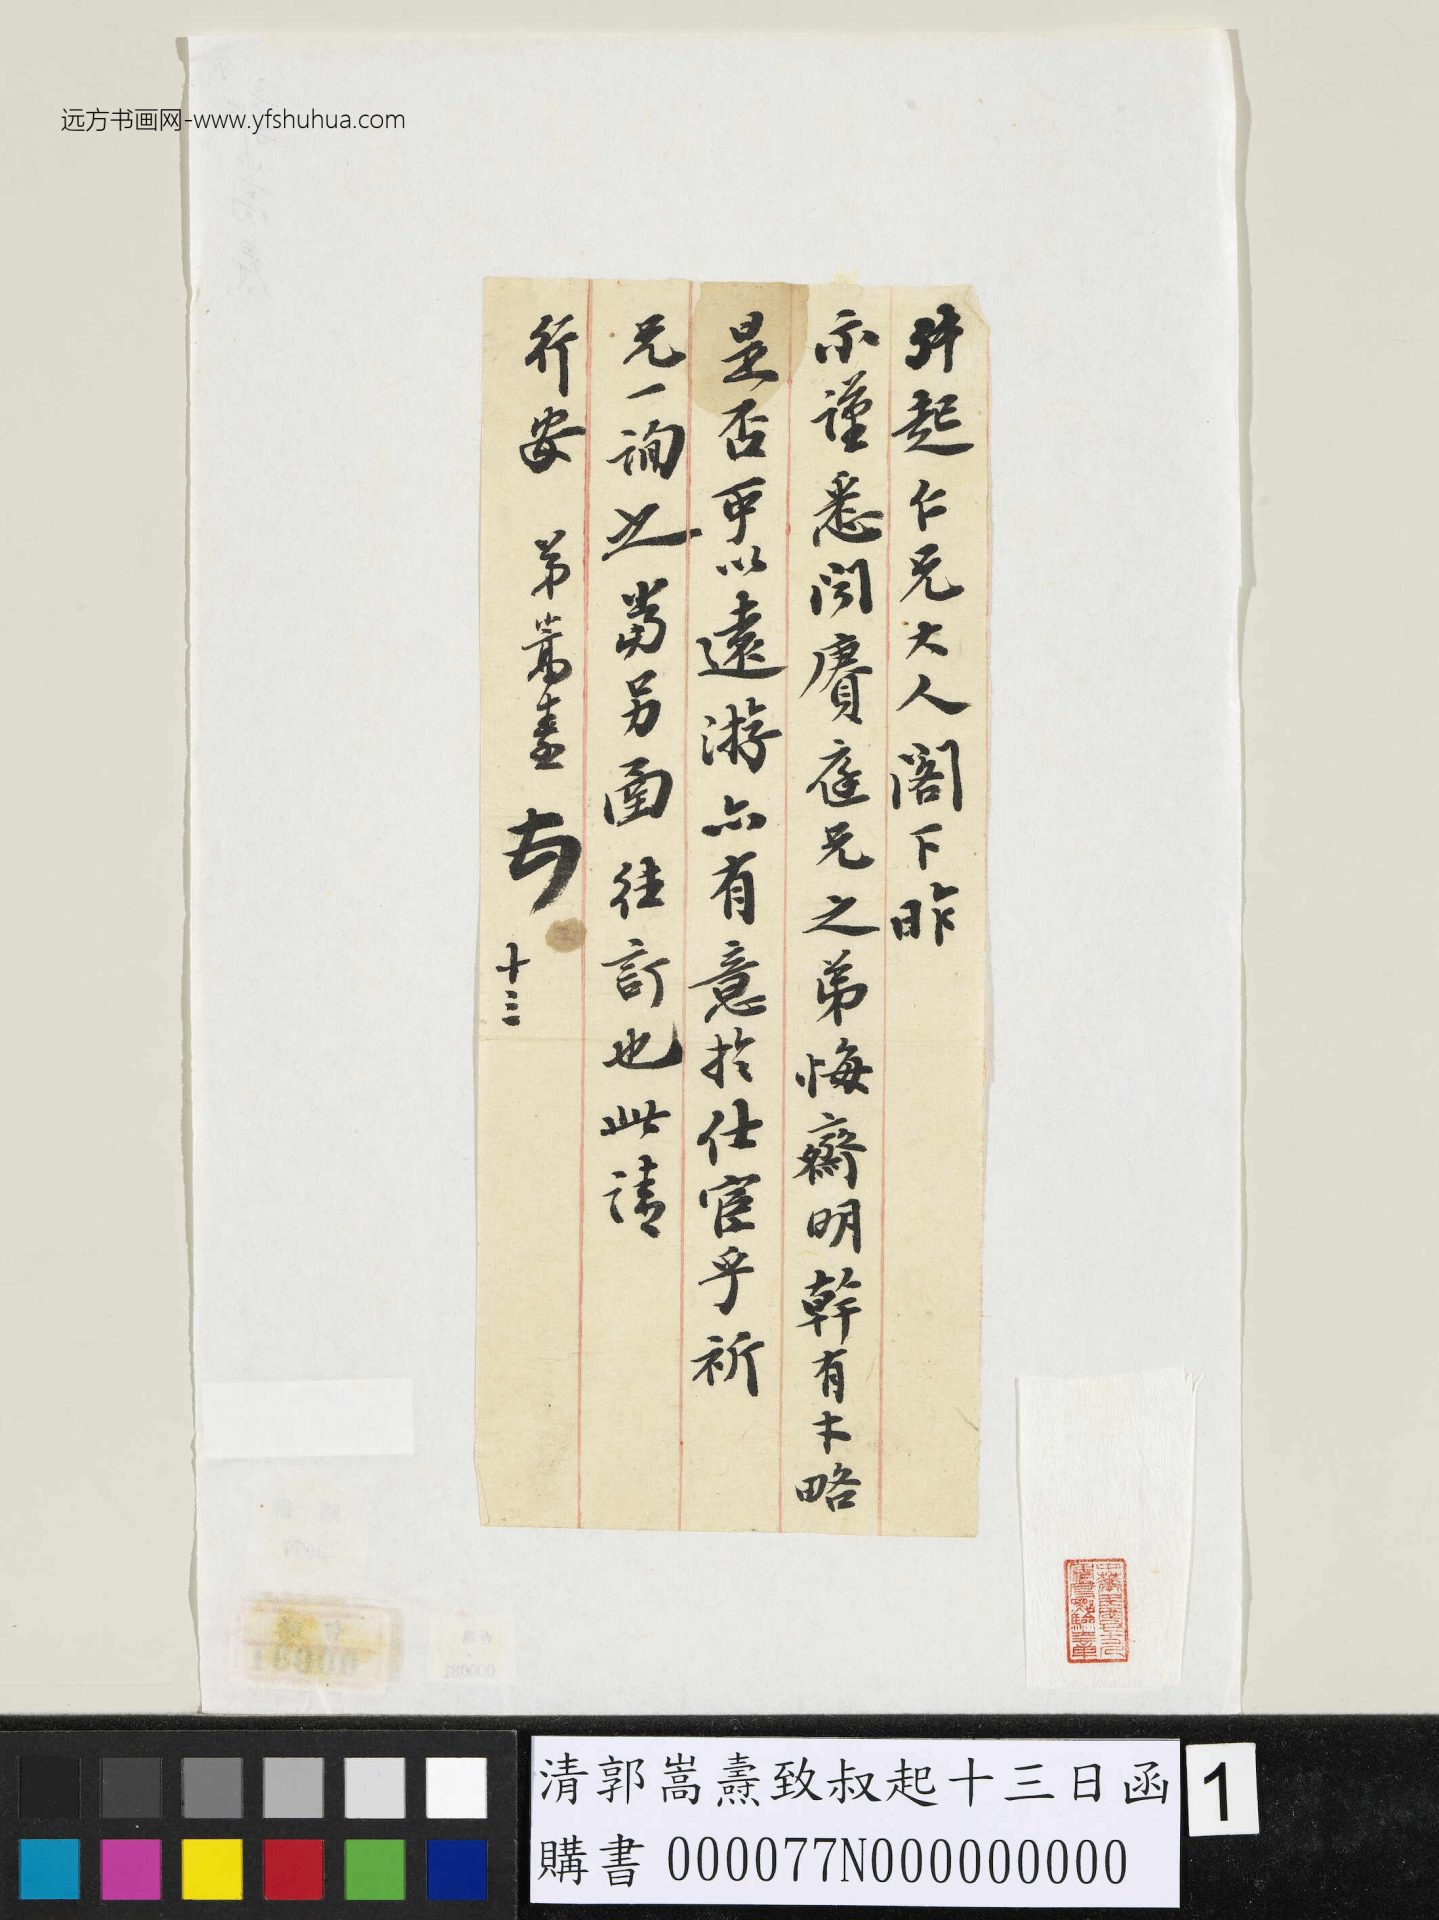 远方书画网-www.yfshuhua.com
起仁兄大人閣下昨
示謹悉閔賡庭兄之弟悔齋明幹有才略
是否可以遠游亦有意於仕宦乎祈
兄一詢之當另函往訂也此請
行安 弟嵩燾 十三
清郭嵩燾致叔起十三日函
購書 000077N000000000
1